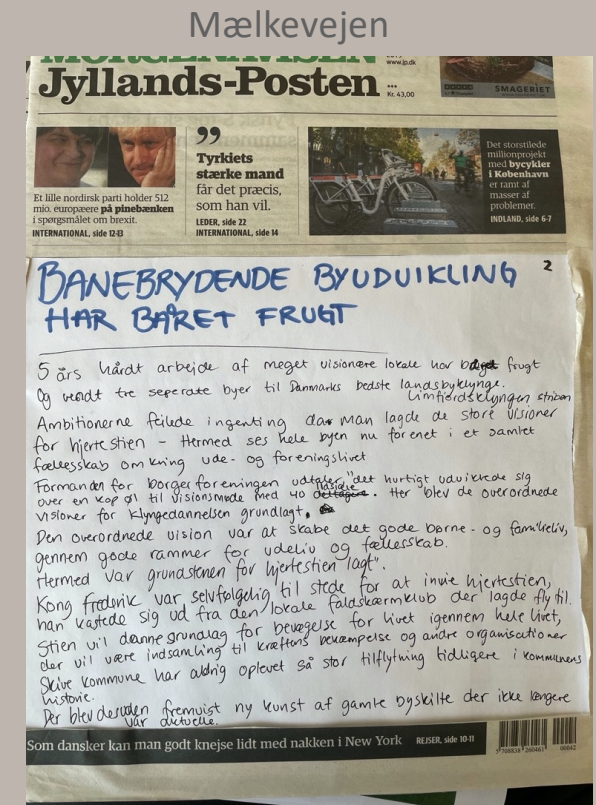 Mælkevejen
MORGENAVISEN
Jyllands-Posten
www.jp.dk
Kr. 43,00
SMAGERIET
Et lille nordirsk parti holder 512
mio. europæere på pinebænken
i spørgsmålet om brexit.
INTERNATIONAL, side 12-13
”
Tyrkiets
stærke mand
får det præcis,
som han vil.
LEDER, side 22
INTERNATIONAL, side 14
Det storstilede
millionprojekt
med bycykler
i København
er ramt af
masser af
problemer.
INDLAND, side 6-7
BANEBRYDENDE BYUDVIKLING 2
HAR BÅRET FRUGT
5 års hårdt arbejde af meget visionære lokale har båret frugt
Og vendt tre seperate byer til Danmarks bedste landsbyklynge.
Limfjordsklyngen
Ambitionerne fejlede ingenting da man lagde de store visioner
for hjertestien - Hermed ses hele byen nu forenet i et samlet
fællesskab omkring ude- og foreningslivet
Formanden for borgerforeningen udtaler "det hurtigt udviklede sig
over en kop øl til visionsmøde med 40 ildsjæle. Her blev de overordnede
visioner for klyngedannelsen grundlagt.
Den overordnede vision var at skabe det gode børne- og familieliv,
gennem gode rammer for udeliv og fællesskab.
Hermed var grundstenen for hjertestien lagt".
Kong Frederik var selvfølgelig til stede for at invie hjertestien,
han kastede sig ud fra den lokale faldskærmklub der lagde fly til.
Stien vil danne grundlag for bevægelse for livet igennem hele livet,
der vil være indsamling til kræftens bekæmpelse og andre organisationer
Skive kommune har aldrig oplevet så stor tilflytning tidligere i kommunens
historie.
Der blev desuden fremvist ny kunst af gamle byskilte der ikke længere
var aktuelle.
Som dansker kan man godt knejse lidt med nakken i New York REJSER, side 10-11
5 708838 260461 00042